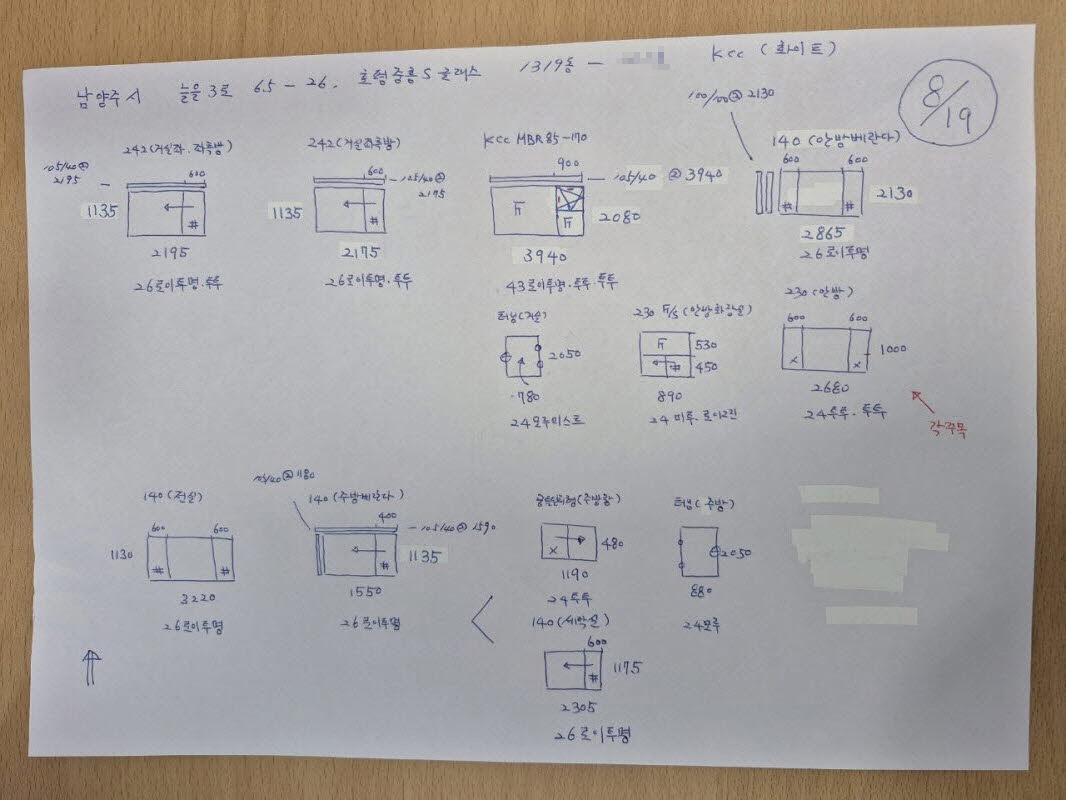 남양주시 늘을3로 65-26. 호평중흥S클래스 1319동 - KCC (화이트)
8/19
242(거실좌.좌측방)
105/40@
2195
600
1135
#
2195
26로이투명.투투
242(거실좌측방)
600
105/40@
2175
1135
#
2175
26로이투명.투투
KCC MBR 85-170
900
105/40 @3940
F
F
2080
3940
43로이투명.투투.투투
100/100@2130
140(안방베란다)
600 600
# #
2130
2865
26로이투명
터닝(거실)
2050
780
24모루미스트
230 F/S (안방화장실)
F
530
#
450
890
24 미투.로이2진
230(안방)
600 600
x x
1000
2680
24투투.투투
각주목
140(전실)
600 600
1130
# #
3220
26로이투명
@1180
140(주방베란다)
400
105/40@1590
#
1135
1550
26로이투명
(주방창)
x
480
1190
24투투
터닝(주방)
2050
880
24모루
140(세탁실)
600
#
1175
2305
26로이투명